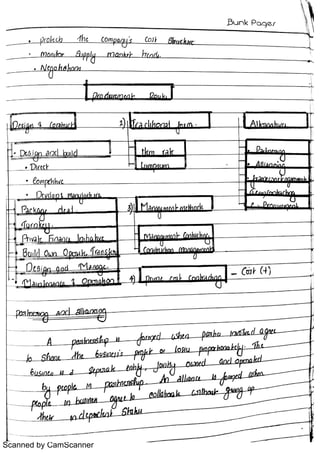 Bunk Pages
• protects the company's cost structure
• monitor supply market trends.
• Negotiations
Procurement Route
Design & Construct
2) Traditional form
Alternative
• Design and build
• Direct
• Competitive
• Develop & Manufacture
Item rate
Lumpsum
• Partnering
• Alliancing
• Package deal
• Turnkey
• Private Finance Initiative
• Build Own Operate Transfer
• Design and Manage
• Maintenance & Operation
3) Management methods
Management Contracting
Construction management
4) prime cost Contracting
- Cost (+)
partnering and alliancing
A partnership is formed when parties involved agree
to share the business's profit or loss proportionately. The
business is a seperate entity, jointly owned and operated
by people in partnership. An alliance is formed when
people in business agree to collaborate without giving up
their independent status
Scanned by CamScanner